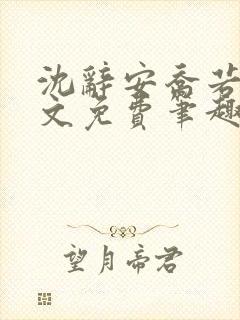 沈辞安乔若
文免费笔趣
望月帝君